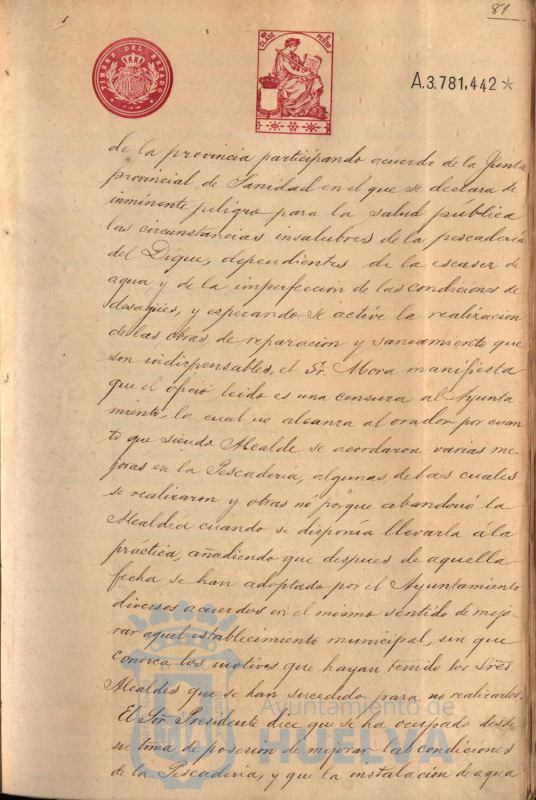 81
TIMBRE DEL ESTADO
CLASE
A.3.781,442 *
de la provincia participando acuerdo de la Junta
provincial de Sanidad en el que se declara de
inminente peligro para la salud pública
las circunstancias insalubres de la pescadería
del Dique, dependientes de la escasez de
agua y de la imperfección de las condiciones de
desagües, y esperando se active la realizacion
de las obras de reparacion y saneamiento que
son indispensables, el Sr. Mora manifiesta
que el oficio leido es una censura al Ayunta-
miento, la cual no alcanza al orador por cuan
to que siendo Alcalde se acordaron varias me-
joras en la Pescadería, algunas de las cuales
se realizaron y otras no porque abandonó la
Alcaldia cuando se disponía llevarla á la
práctica, añadiendo que despues de aquella
fecha se han adoptado por el Ayuntamiento
diversos acuerdos en el mismo sentido de mejo-
rar aquel establecimiento municipal, sin que
conozca los motivos que hayan tenido los Sres.
Alcaldes que se han sucedido para no realizarlos.
El Sor. Presidente dice que se ha ocupado desde
su toma de posesion de mejorar las condiciones
de la Pescadería, y que la instalacion de agua
Ayuntamiento de
HUELVA